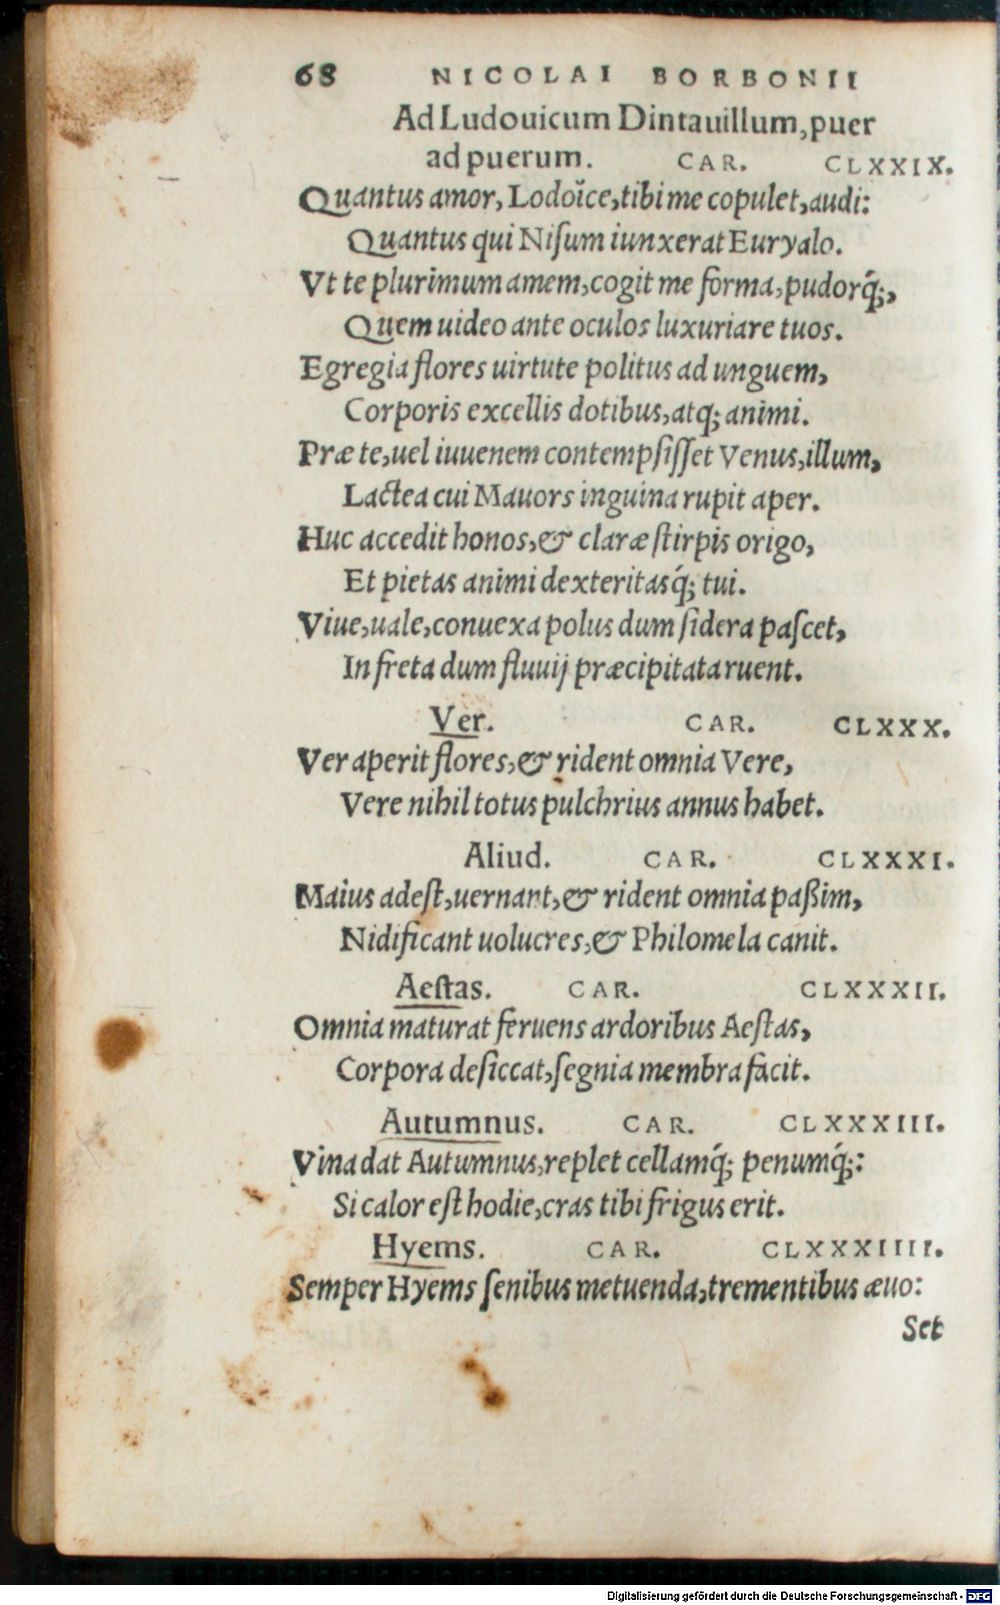 68 NICOLAI BORBONII
Ad Ludouicum Dintauillum, puer
ad puerum. CAR. CLXXIX.
Quantus amor, Lodoïce, tibi me copulet, audi:
Quantus qui Niſum iunxerat Euryalo.
Vt te plurimum amem, cogit me forma, pudorq́;,
Quem uideo ante oculos luxuriare tuos.
Egregia flores uirtute politus ad unguem,
Corporis excellis dotibus, atq; animi.
Præ te, uel iuuenem contempſiſſet Venus, illum,
Lactea cui Mauors inguina rupit aper.
Huc accedit honos, & claræ ſtirpis origo,
Et pietas animi dexteritasq́; tui.
Viue, uale, conuexa polus dum ſidera paſcet,
In freta dum fluuij præcipitata ruent.
Ver. CAR. CLXXX.
Ver aperit flores, & rident omnia Vere,
Vere nihil totus pulchrius annus habet.
Aliud. CAR. CLXXXI.
Maius adeſt, uernant, & rident omnia paßim,
Nidificant uolucres, & Philomela canit.
Aeſtas. CAR. CLXXXII.
Omnia maturat feruens ardoribus Aeſtas,
Corpora deſiccat, ſegnia membra facit.
Autumnus. CAR. CLXXXIII.
Vina dat Autumnus, replet cellamq́; penumq́;:
Si calor eſt hodie, cras tibi frigus erit.
Hyems. CAR. CLXXXIIII.
Semper Hyems ſenibus metuenda, trementibus æuo:
Set
Digitalisierung gefördert durch die Deutsche Forschungsgemeinschaft - DFG